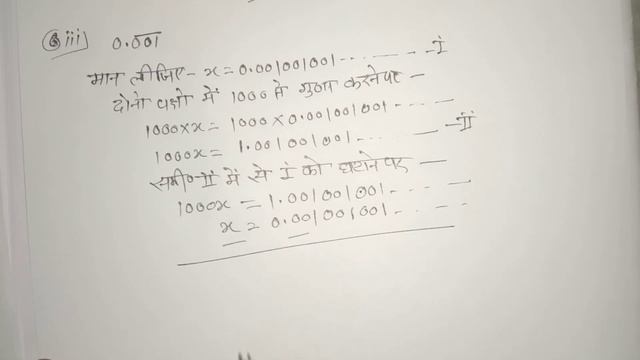 (iii) 0.0̅0̅1̅
मान लीजिए- x = 0.001001001 ... - - - I
दोनो पक्षो में 1000 से गुणा करने पर -
1000×x = 1000 × 0.001001001 ... -
1000x = 1.001001001 ... - - II
समी० II में से I को घटाने पर -
1000x = 1.001001001 ... -
x = 0.001001001 ... -